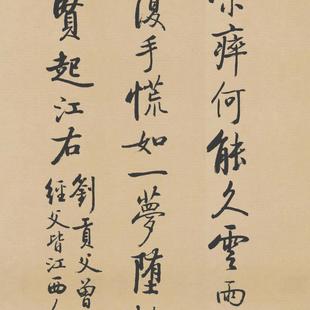 瘁何能久雲雨
覆手慌如一夢墮
賢起江右
劉貢父曾
經父皆江西